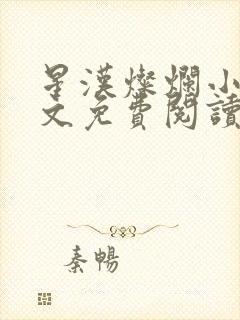 星漢燦爛小
文免費閱讀
秦暢